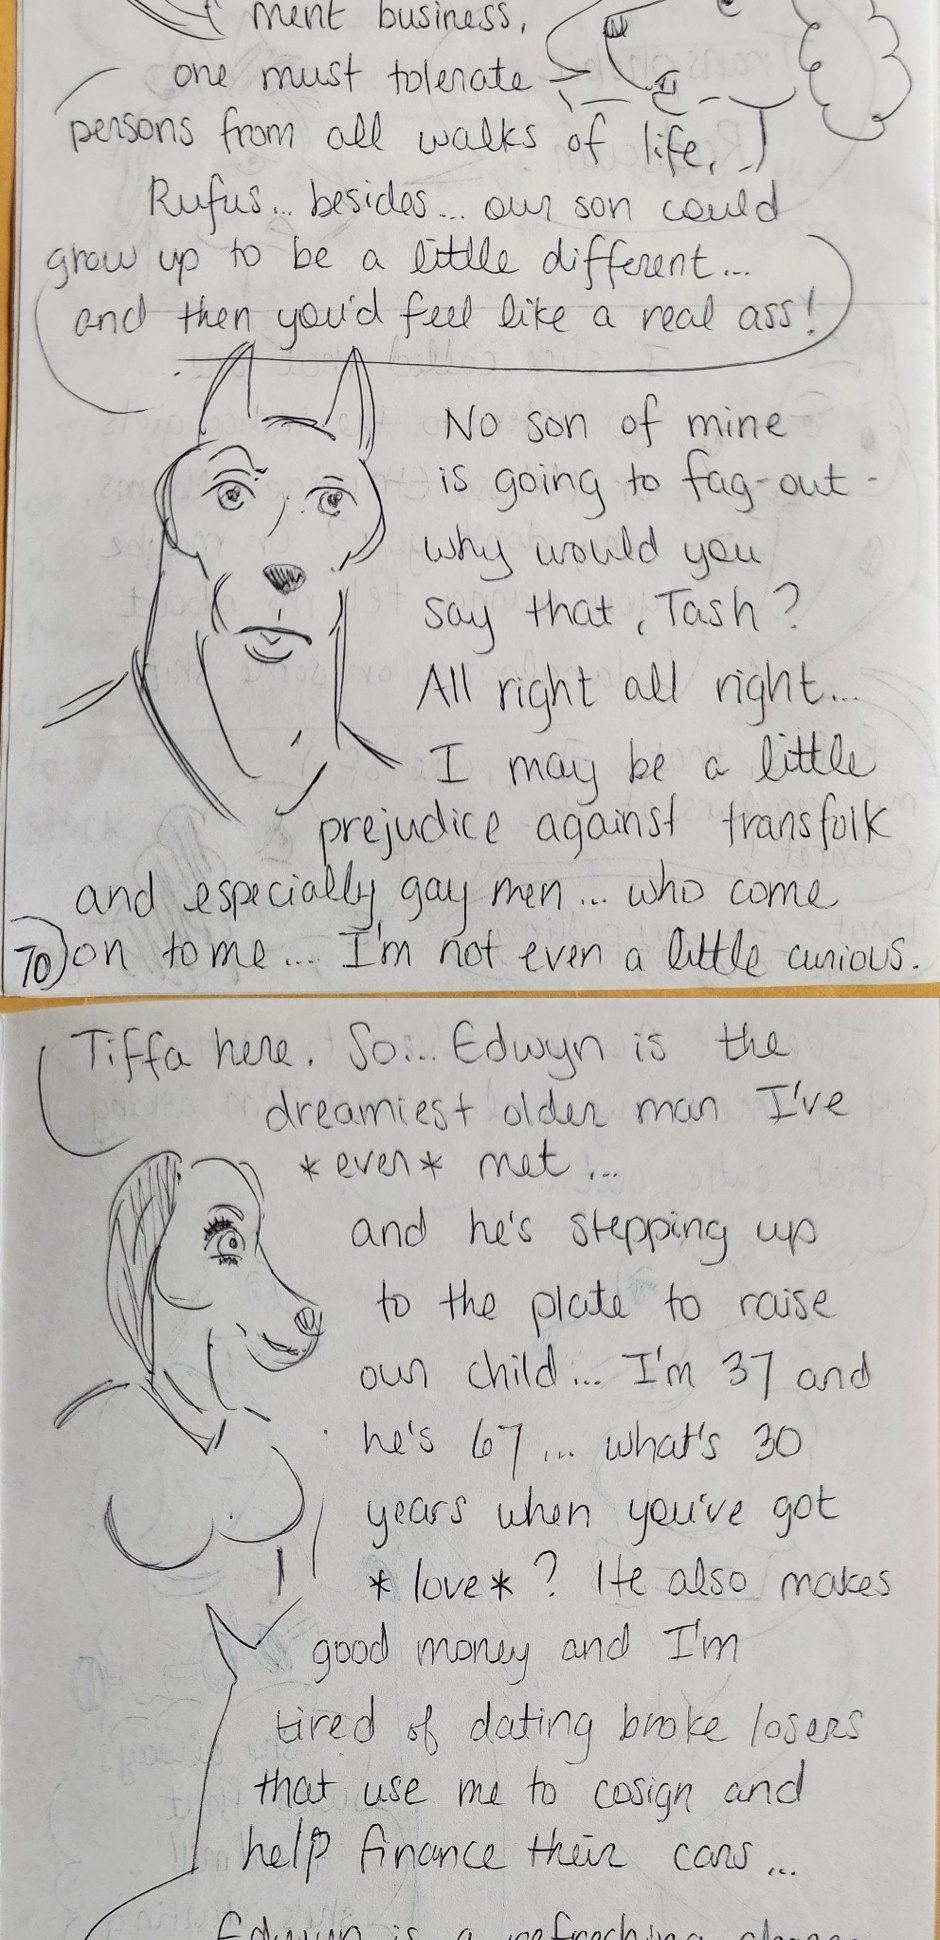 ment business,
one must tolerate
persons from all walks of life,
Rufus... besides... our son could
grow up to be a little different...
and then you'd feel like a real ass!
No son of mine
is going to fag-out -
why would you
say that, Tash?
All right all right...
I may be a little
prejudice against transfolk
and especially gay men... who come
70 on to me... I'm not even a little curious.
Tiffa here. So... Edwyn is the
dreamiest older man I've
*ever* met...
and he's stepping up
to the plate to raise
our child... I'm 37 and
he's 67... what's 30
years when you've got
*love*? He also makes
good money and I'm
tired of dating broke losers
that use me to cosign and
help finance their cars...
Edwyn is a refreshing change